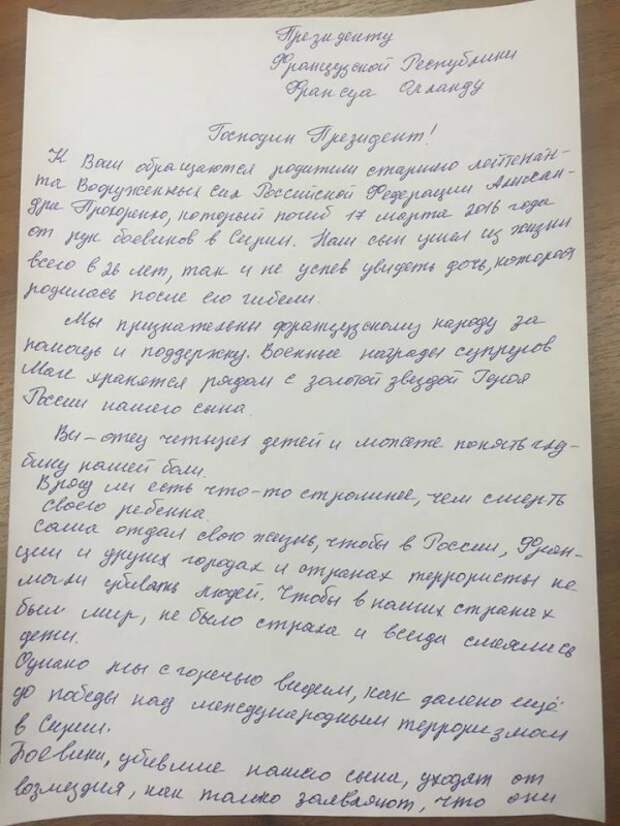 Президенту
Французской Республики
Франсуа Олланду
Господин Президент!
К Вам обращаются родители старшего лейтенан-
та Вооруженных сил Российской Федерации Алексан-
дра Прохоренко, который погиб 17 марта 2016 года
от рук боевиков в Сирии. Наш сын ушел из жизни
всего в 26 лет, так и не успев увидеть дочь, которая
родилась после его гибели.
Мы признательны французскому народу за
помощь и поддержку. Военные награды супругов
Маге хранятся рядом с золотой звездой Героя
России нашего сына.
Вы - отец четырех детей и можете понять глу-
бину нашей боли.
Вряд ли есть что-то страшнее, чем смерть
своего ребенка.
Саша отдал свою жизнь, чтобы в России, Фран-
ции и других городах и странах террористы не
могли убивать людей. Чтобы в наших странах
был мир, не было страха и всегда смеялись
дети.
Однако мы с горечью видим, как далеко ещё
до победы над международным терроризмом
в Сирии.
Боевики, убившие нашего сына, уходят от
возмездия, как только заявляют, что они